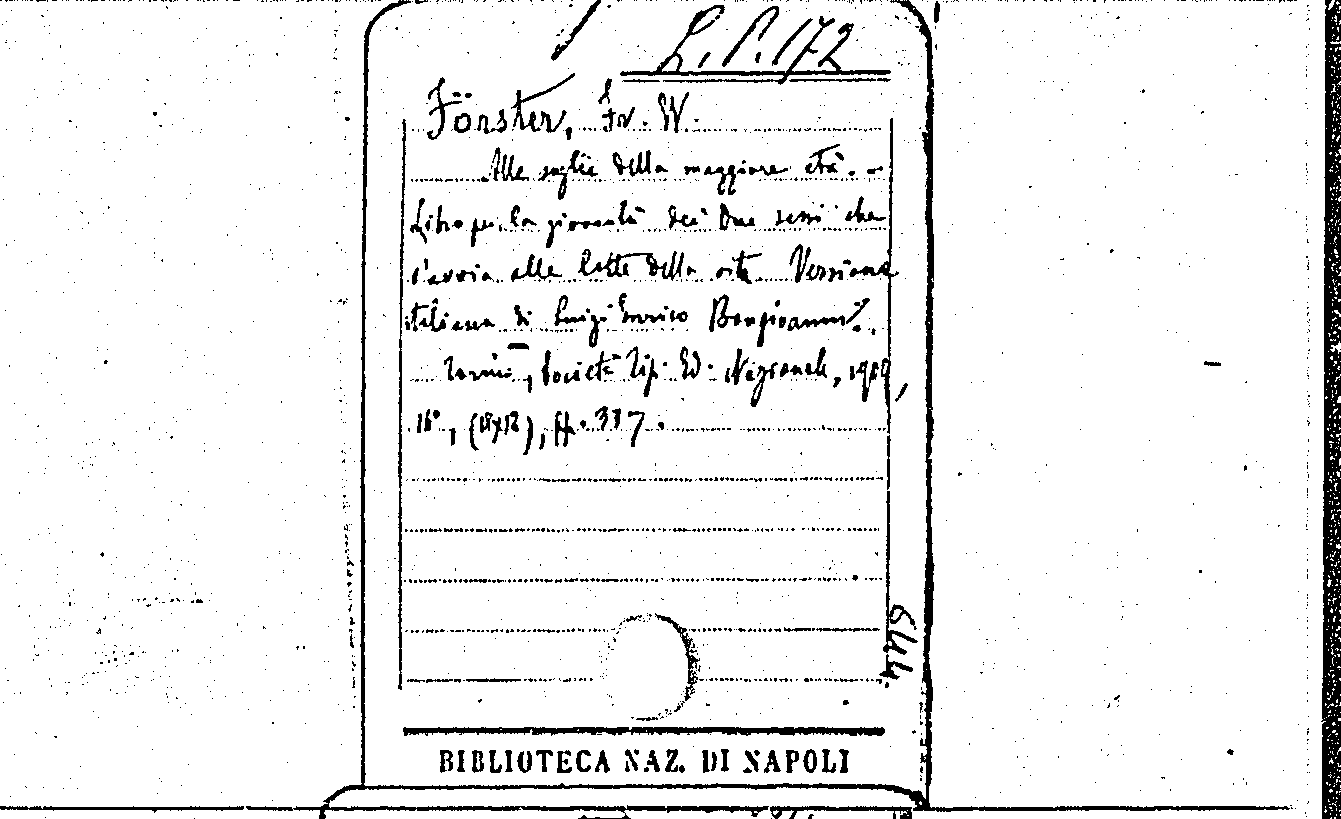 L.P.172
Förster, Fr. W.
Alle soglie della maggiore età. -
Libro per la gioventù dei due sessi che
s'avvia alle lotte della vita. Versione
italiana di Luigi Enrico Bongioanni.
Torino, Società Tip. Ed. Nazionale, 1909,
16°, (18x12), pp. 387.
644.
BIBLIOTECA NAZ. DI NAPOLI